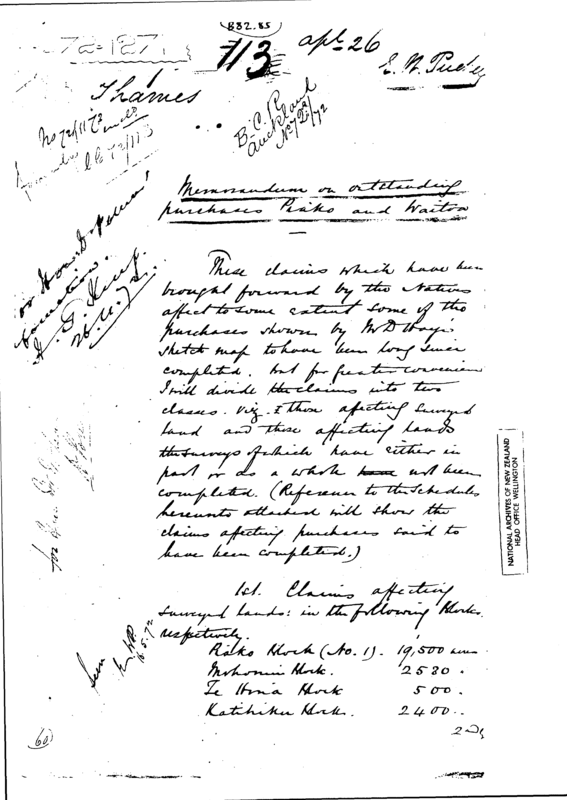 B82.85
72-1271
113
Apl. 26
E. W. Puckey
Thames
No 72/1173
72/113
B.C.P.
Auckland
No 72/72
Memorandum on outstanding
purchases Piako and Waitoa
These claims which have been
brought forward by the Natives
affect to some extent some of the
purchases shown by Mr D Hay's
sketch map to have been long since
completed. but for greater convenience
I will divide the claims into two
classes. Viz. I those affecting surveyed
land and those affecting lands
the surveys of which have either in
part or as a whole have not been
completed. (Reference to the Schedules
hereunto attached will show the
claims affecting purchases said to
have been completed.)
1st. Claims affecting
surveyed lands: in the following Blocks.
respectively.
Piako Block (No. 1). 19,500 acres
Block. 2530.
Te Block 500.
Block. 2400.
2nd
Seen
6.5.72
(60)
NATIONAL ARCHIVES OF NEW ZEALAND
HEAD OFFICE WELLINGTON